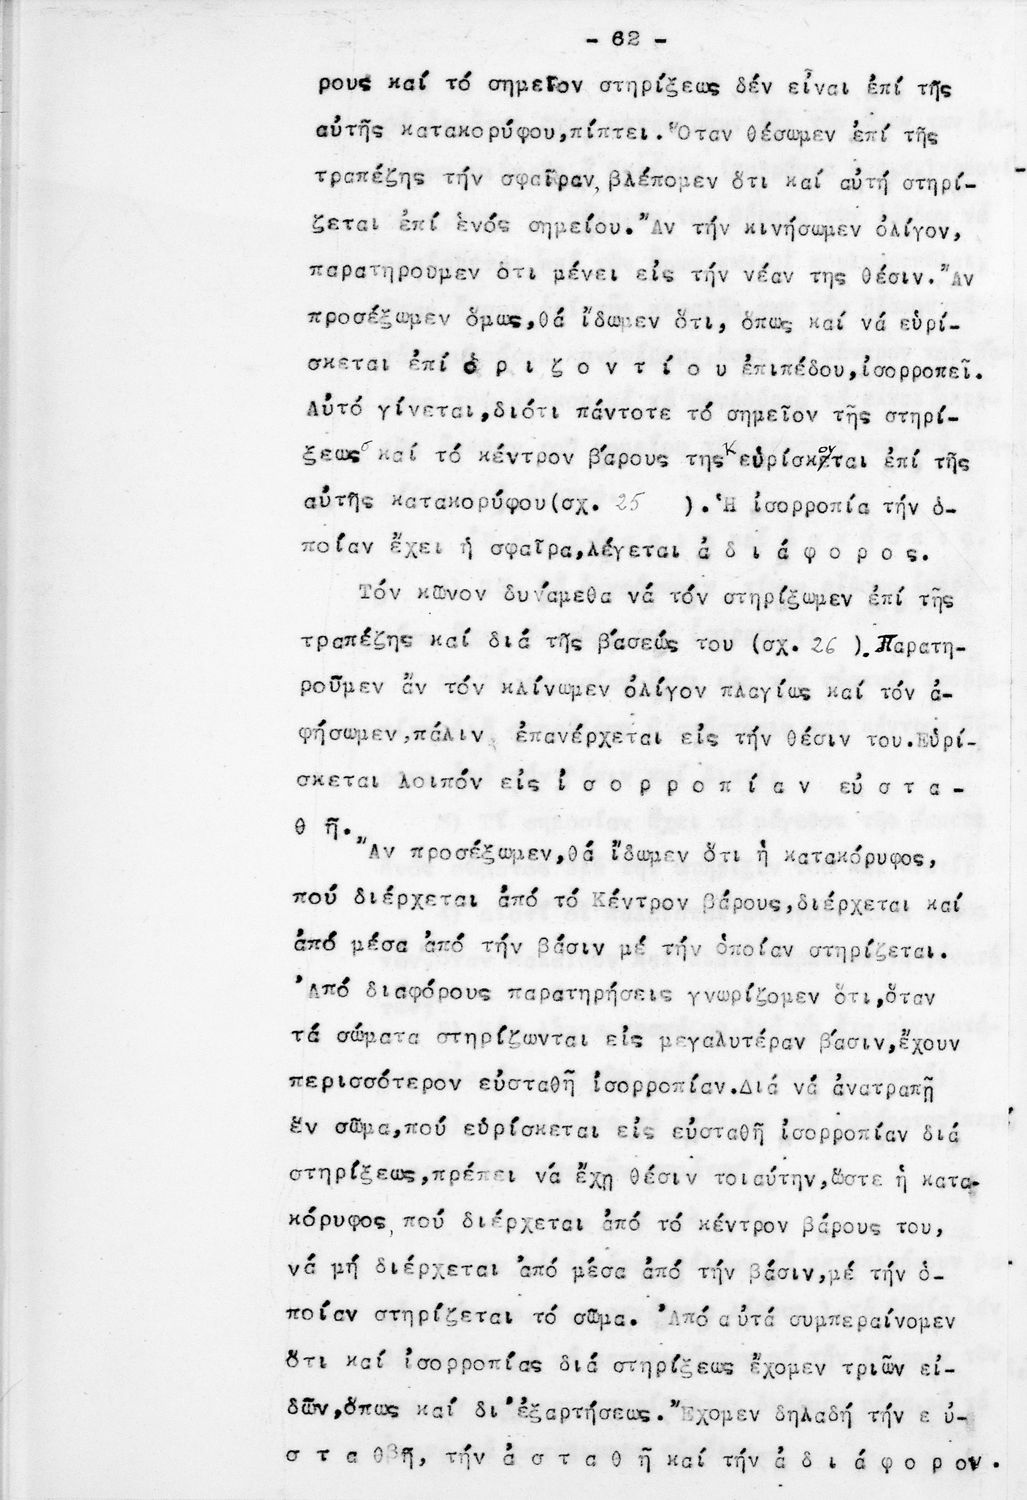 - 62 -
ρους καί τό σημεῖον στηρίξεως δέν εἶναι ἐπί τῆς
αὐτῆς κατακορύφου,πίπτει.Ὅταν θέσωμεν ἐπί τῆς
τραπέζης τήν σφαῖραν, βλέπομεν ὅτι καί αὐτή στηρί-
ζεται ἐπί ἑνός σημείου. Ἄν τήν κινήσωμεν ὀλίγον,
παρατηροῦμεν ὅτι μένει εἰς τήν νέαν της θέσιν. Ἄν
προσέξωμεν ὅμως,θά ἴδωμεν ὅτι, ὅπως καί νά εὑρί-
σκεται ἐπί ὁ ρ ι ζ ο ν τ ί ο υ ἐπιπέδου,ἰσορροπεῖ.
Αὐτό γίνεται,διότι πάντοτε τό σημεῖον τῆς στηρί-
ξεως σ καί τό κέντρον βάρους της κ εὑρίσκονται ἐπί τῆς
αὐτῆς κατακορύφου(σχ. 25 ). Ἡ ἰσορροπία τήν ὁ-
ποίαν ἔχει ἡ σφαῖρα,λέγεται ἀ δ ι ά φ ο ρ ο ς.
Τόν κῶνον δυνάμεθα νά τόν στηρίξωμεν ἐπί τῆς
τραπέζης καί διά τῆς βάσεώς του (σχ. 26 ). Παρατη-
ροῦμεν ἄν τόν κλίνωμεν ὀλίγον πλαγίως καί τόν ἀ-
φήσωμεν,πάλιν ἐπανέρχεται εἰς τήν θέσιν του.Εὑρί-
σκεται λοιπόν εἰς ἰ σ ο ρ ρ ο π ί α ν εὐ σ τ α -
θ ῆ.
Ἄν προσέξωμεν,θά ἴδωμεν ὅτι ἡ κατακόρυφος,
πού διέρχεται ἀπό τό Κέντρον βάρους,διέρχεται καί
ἀπό μέσα ἀπό τήν βάσιν μέ τήν ὁποίαν στηρίζεται.
Ἀπό διαφόρους παρατηρήσεις γνωρίζομεν ὅτι,ὅταν
τά σώματα στηρίζωνται εἰς μεγαλυτέραν βάσιν,ἔχουν
περισσότερον εὐσταθῆ ἰσορροπίαν.Διά νά ἀνατραπῇ
ἕν σῶμα,πού εὑρίσκεται εἰς εὐσταθῆ ἰσορροπίαν διά
στηρίξεως,πρέπει νά ἔχῃ θέσιν τοιαύτην,ὥστε ἡ κατα-
κόρυφος, πού διέρχεται ἀπό τό κέντρον βάρους του,
νά μή διέρχεται ἀπό μέσα ἀπό τήν βάσιν,μέ τήν ὁ-
ποίαν στηρίζεται τό σῶμα. Ἀπό αὐτά συμπεραίνομεν
ὅτι καί ἰσορροπίας διά στηρίξεως ἔχομεν τριῶν εἰ-
δῶν,ὅπως καί δι' ἐξαρτήσεως. Ἔχομεν δηλαδή τήν ε ὐ-
σ τ α θ ῆ, τήν ἀ σ τ α θ ῆ καί τήν ἀ δ ι ά φ ο ρ ο ν.